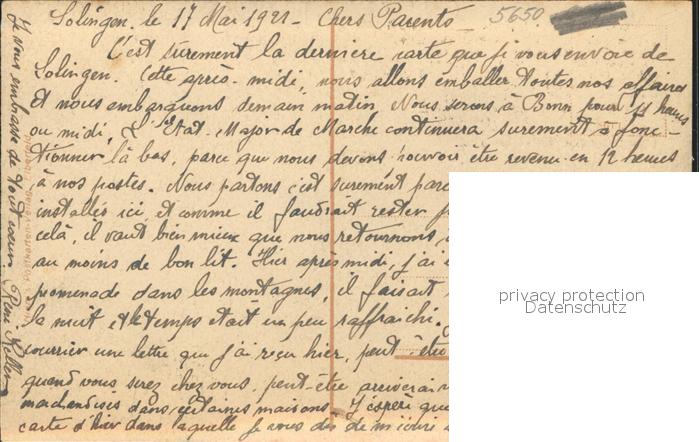 Solingen. le 17 Mai 1921 - Chers Parents
5650
C'est surement la dernière carte que je vous envoie de
Solingen. Cette après-midi, nous allons emballer toutes nos affaires
et nous embarquons demain matin. Nous serons à Bonn pour 11 heures
ou midi. L'Etat-Major de Marche continuera surement à fonc-
tionner là bas, parce que nous devons pouvoir être revenu en 12 heures
à nos postes. Nous partons c'est surement parc
installés ici, et comme il faudrait rester
celà, il vaut bien mieux que nous retournons
au moins de bon lit. Hier après midi, j'ai
promenade dans les montagnes, il faisait
la nuit et le temps était un peu raffraichi.
courrier une lettre que j'ai reçu hier, peut-être
quand vous serez chez vous, peut-être arriverai
marchandises dans certaines maisons. J'espère que
carte d'hier dans laquelle je vous dis de
Je vous embrasse de tout coeur. René Keller
privacy protection
Datenschutz